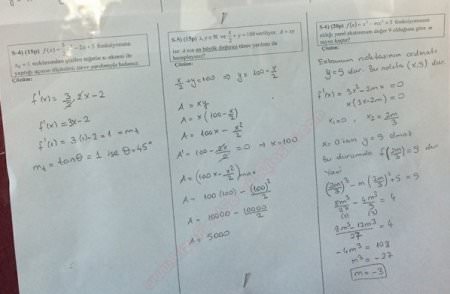 S-4) (15p) f(x) = 3/2 x² - 2x + 5 fonksiyonunun
x₀ = 1 noktasından çizilen teğetin x-ekseni ile
yaptığı açının ölçüsünü, türev yardımıyla bulunuz.
Çözüm:
f'(x) = 3/2 · 2x - 2
f'(x) = 3x - 2
f'(x) = 3(1) - 2 = 1 = mt
mt = tanθ = 1 ise θ = 45°
S-5) (15p) x, y ∈ R ve x/2 + y = 100 veriliyor. A = xy
ise A'nın en büyük değerini türev yardımı ile
hesaplayınız?
Çözüm:
x/2 + y = 100 ⇒ y = 100 - x/2
A = xy
A = x(100 - x/2)
A = 100x - x²/2
A' = 100 - 2x/2 = 0 ⇒ x = 100
A = (100x - x²/2) max
A = 100(100) - (100)²/2
A = 10000 - 10000/2
A = 5000
S-6) (20p) f(x) = x³ - mx² + 5 fonksiyonunun
aldığı yerel ekstremum değer 9 olduğuna göre m
sayısı kaçtır?
Çözüm:
Extremum noktasının ordinatı
y = 9 dur. Bu nokta (x, 9)
f'(x) = 3x² - 2mx = 0
x(3x - 2m) = 0
x₁ = 0, x₂ = 2m/3
x = 0 için y = 9 olmaz
Bu durumda f(2m/3) = 9 dur
Yani
(2m/3)³ - m(2m/3)² + 5 = 9
8m³/27 - 4m³/9 = 4
(1) (3)
8m³ - 12m³ / 27 = 4
-4m³ = 108
m³ = -27
m = -3